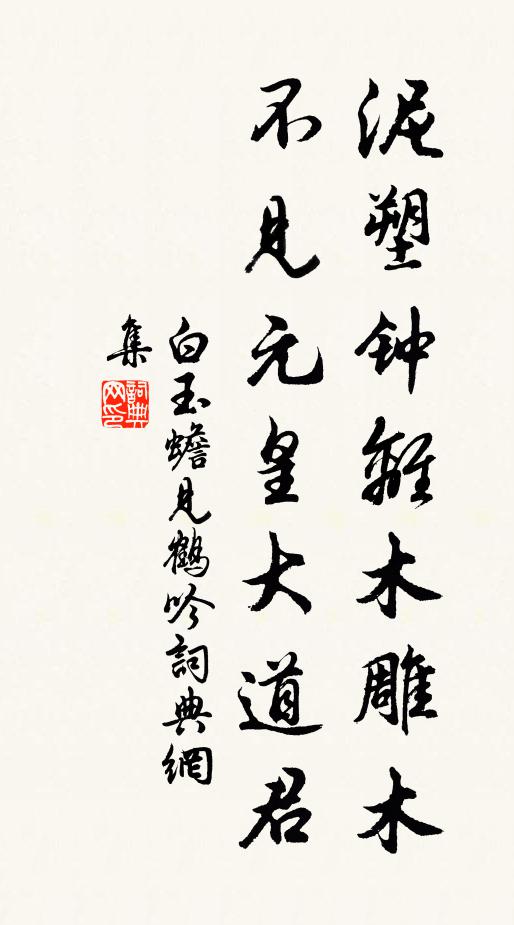 泥塑钟離木雕木
不見元皇大道君
白玉蟾見鶴吟詞典網
集
詞典網印